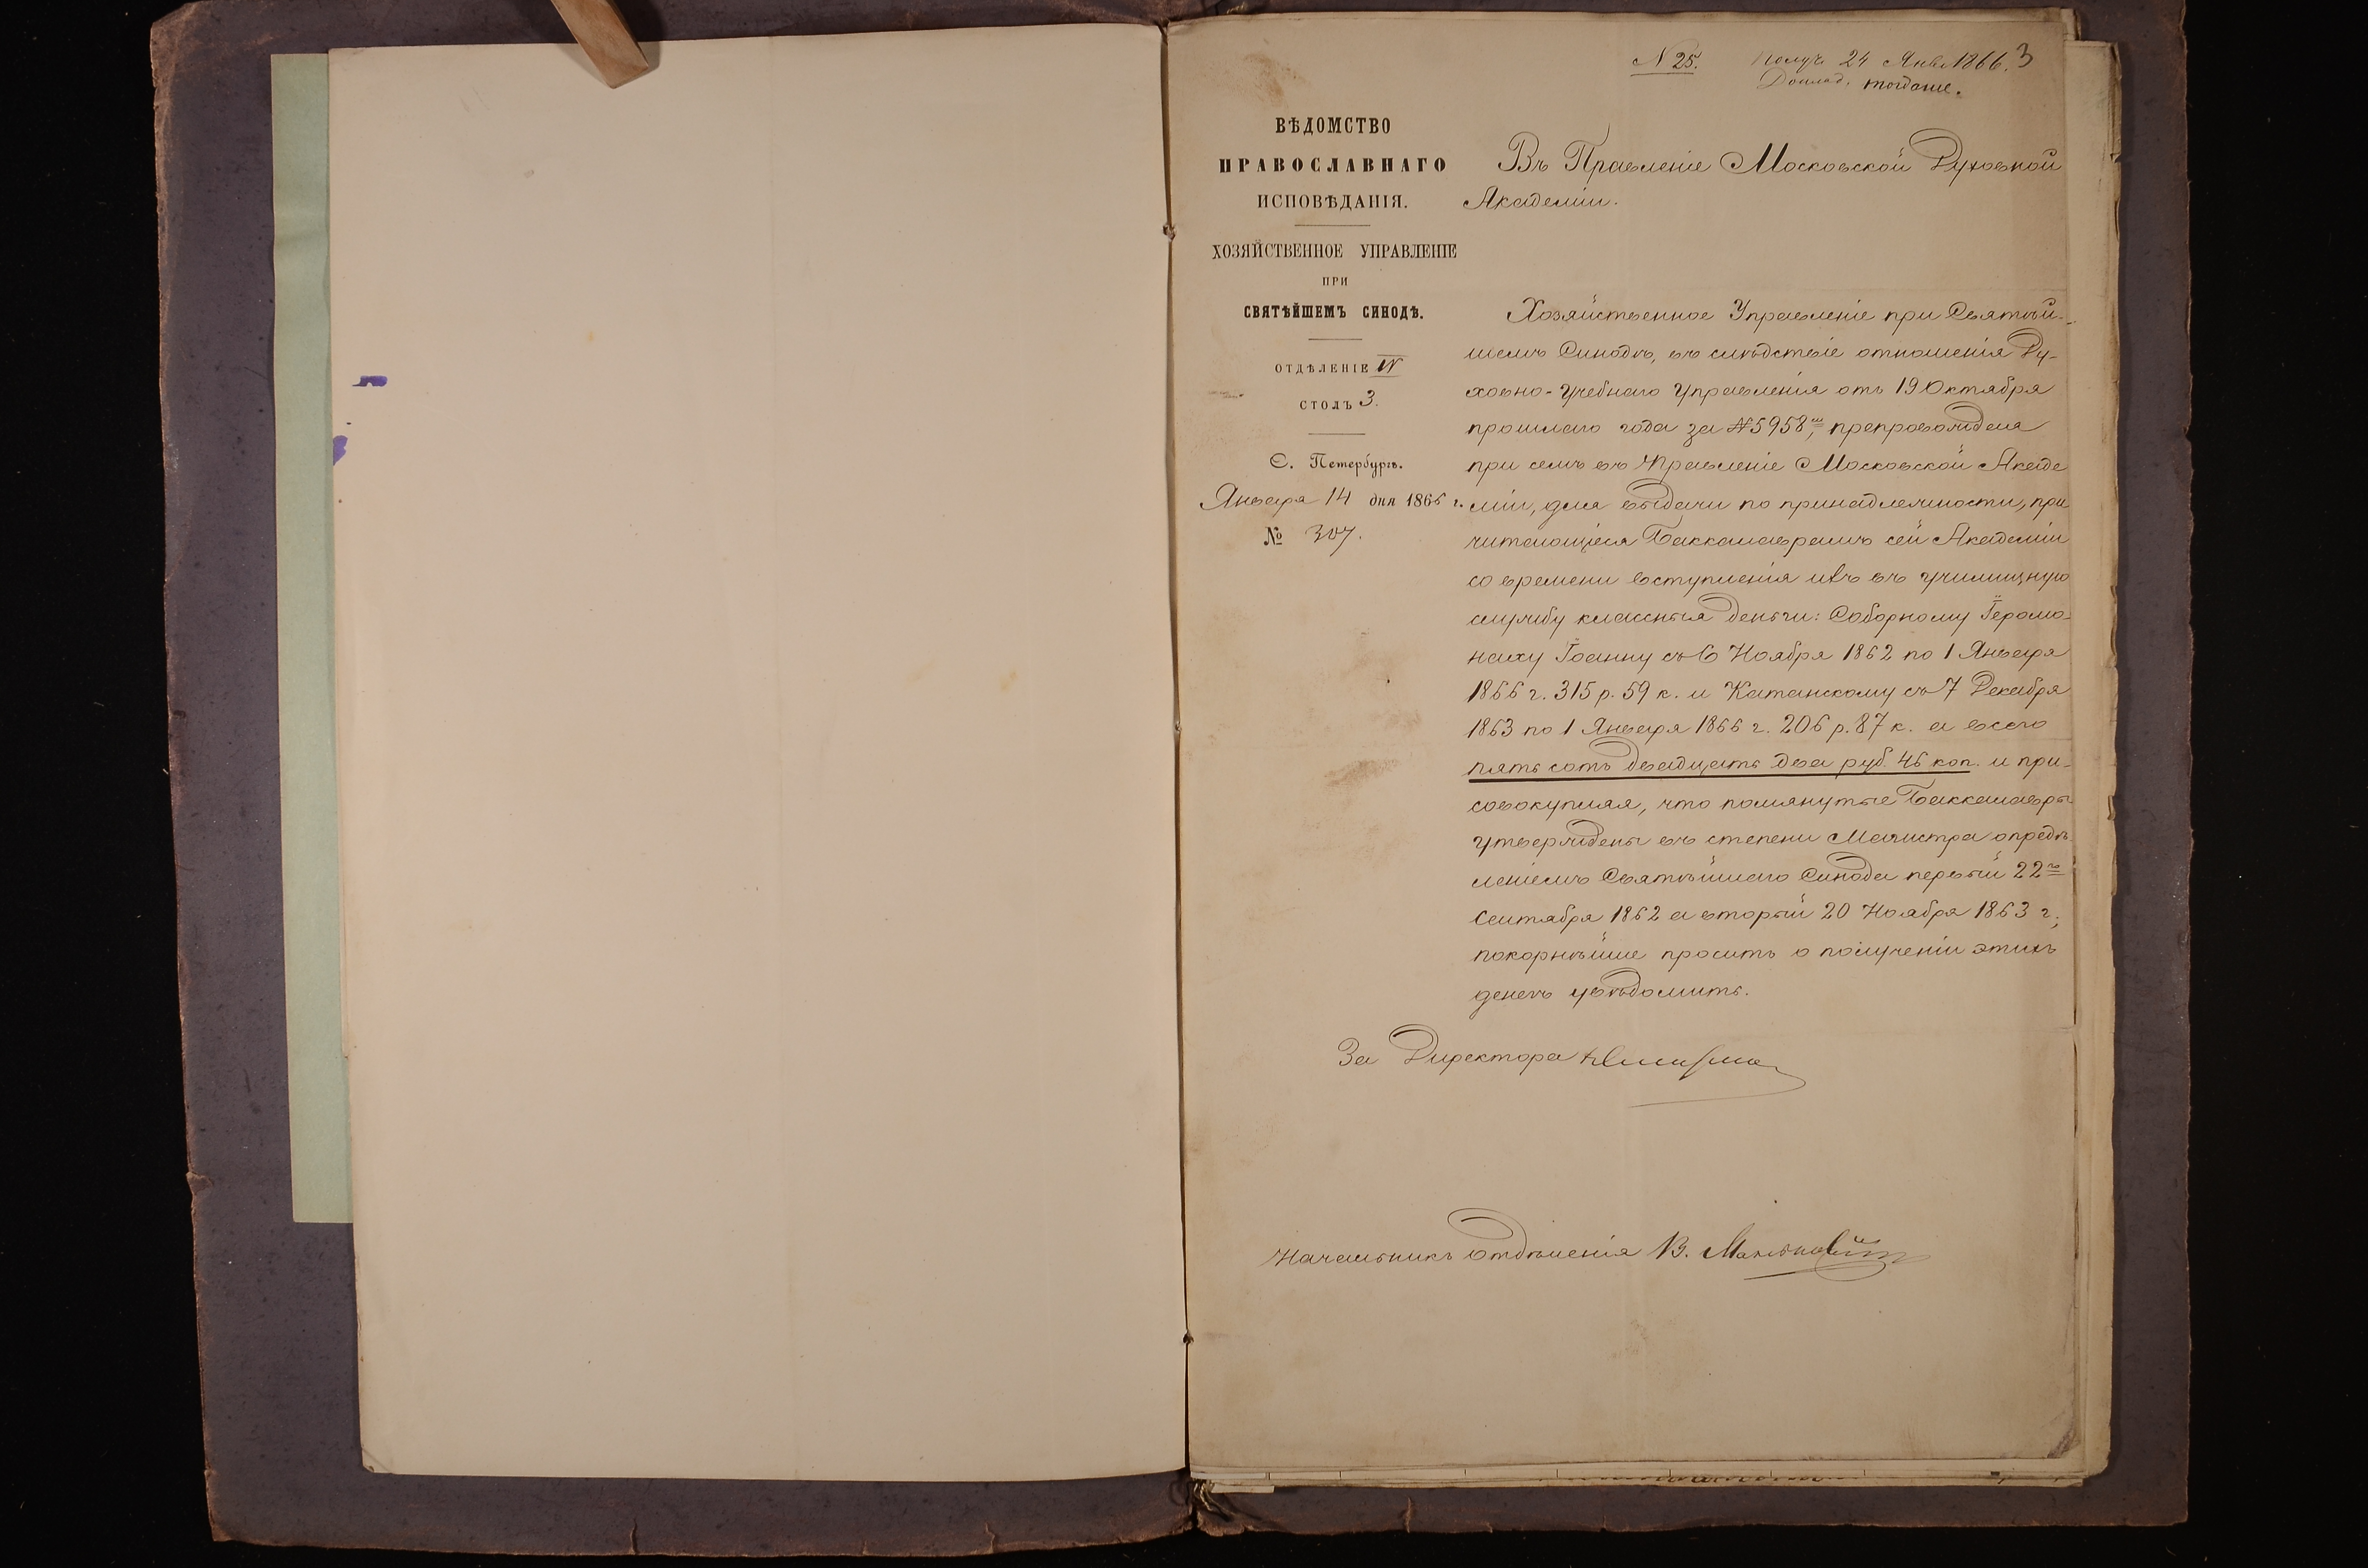 N 25. Получ 24 Янв 1866. 3
Доклад. тогда же.
ВѢДОМСТВО
ПРАВОСЛАВНАГО
ИСПОВѢДАНІЯ.
ХОЗЯЙСТВЕННОЕ УПРАВЛЕНІЕ
ПРИ
СВЯТѢЙШЕМЪ СИНОДѢ.
ОТДѢЛЕНІЕ IV
СТОЛЪ 3.
С. Петербургъ.
Января 14 дня 1866 г.
№ 307.
Въ Правленіе Московской Духовной
Академіи.
Хозяйственное Управленіе при Святѣй-
шемъ Синодѣ, въ слѣдствіе отношенія Ду-
ховно-Учебнаго Управленія отъ 19 Октября
прошлаго года за №5958, препровождая
при семъ въ Правленіе Московской Акаде
міи, для выдачи по принадлежности, при
читающіяся Баккалаврамъ сей Академіи
со времени вступленія ихъ въ училищную
службу классныя деньги: Соборному Іеромо-
наху Іоанну съ 6 Ноября 1862 по 1 Января
1866 г. 315 р. 59 к. и Катанскому съ 7 Декабря
1863 по 1 Января 1866 г. 206 р. 87 к. а всего
пять сотъ двадцать два руб. 46 коп. и при-
совокупляя, что помянутые Баккалавры
утверждены въ степени Магистра опредѣ
леніемъ Святѣйшаго Синода первый 22го
Сентября 1862 а вторый 20 Ноября 1863 г.,
покорнѣйше проситъ о полученіи этихъ
денегъ увѣдомить.
За Директора
Начальникъ Отдѣленія В.